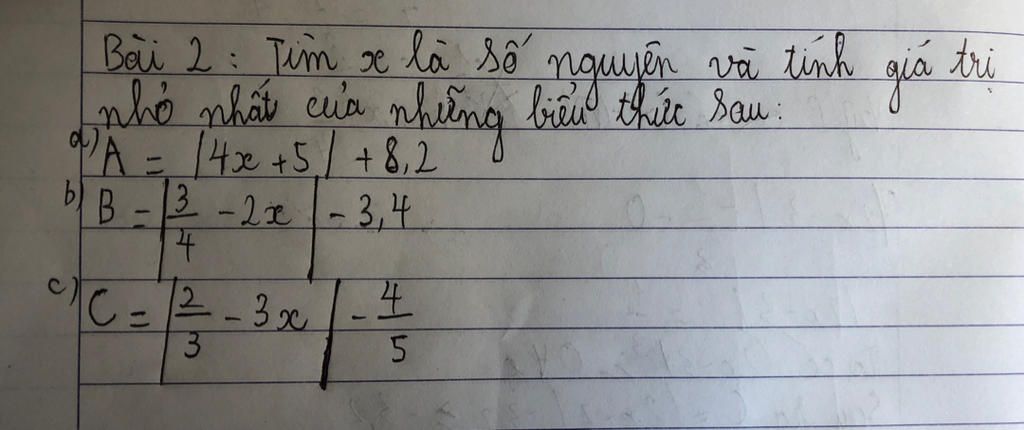 Bài 2: Tìm x là số nguyên và tính giá trị
nhỏ nhất của những biểu thức sau:
a) A = |4x + 5| + 8,2
b) B = |3/4 - 2x| - 3,4
c) C = |2/3 - 3x| - 4/5